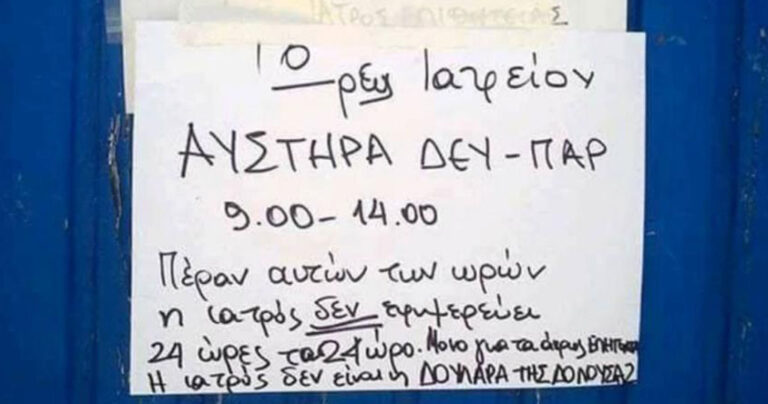 ΙΑΤΡΟΣ
Ὡρες Ιατρείον
ΑΥΣΤΗΡΑ ΔΕΥ-ΠΑΡ
9.00-14.00
Πέραν αυτών των ωρών
η ιατρός δεν εφημερεύει
24 ὡρες το 24ωρο. Μονο για τα άκρως ΕΠΕΙΓΟΝΤΑ
Η ιατρός δεν είναι η ΔΟΥΛΑΡΑ ΤΗΣ ΔΟΝΟΥΣΑΣ